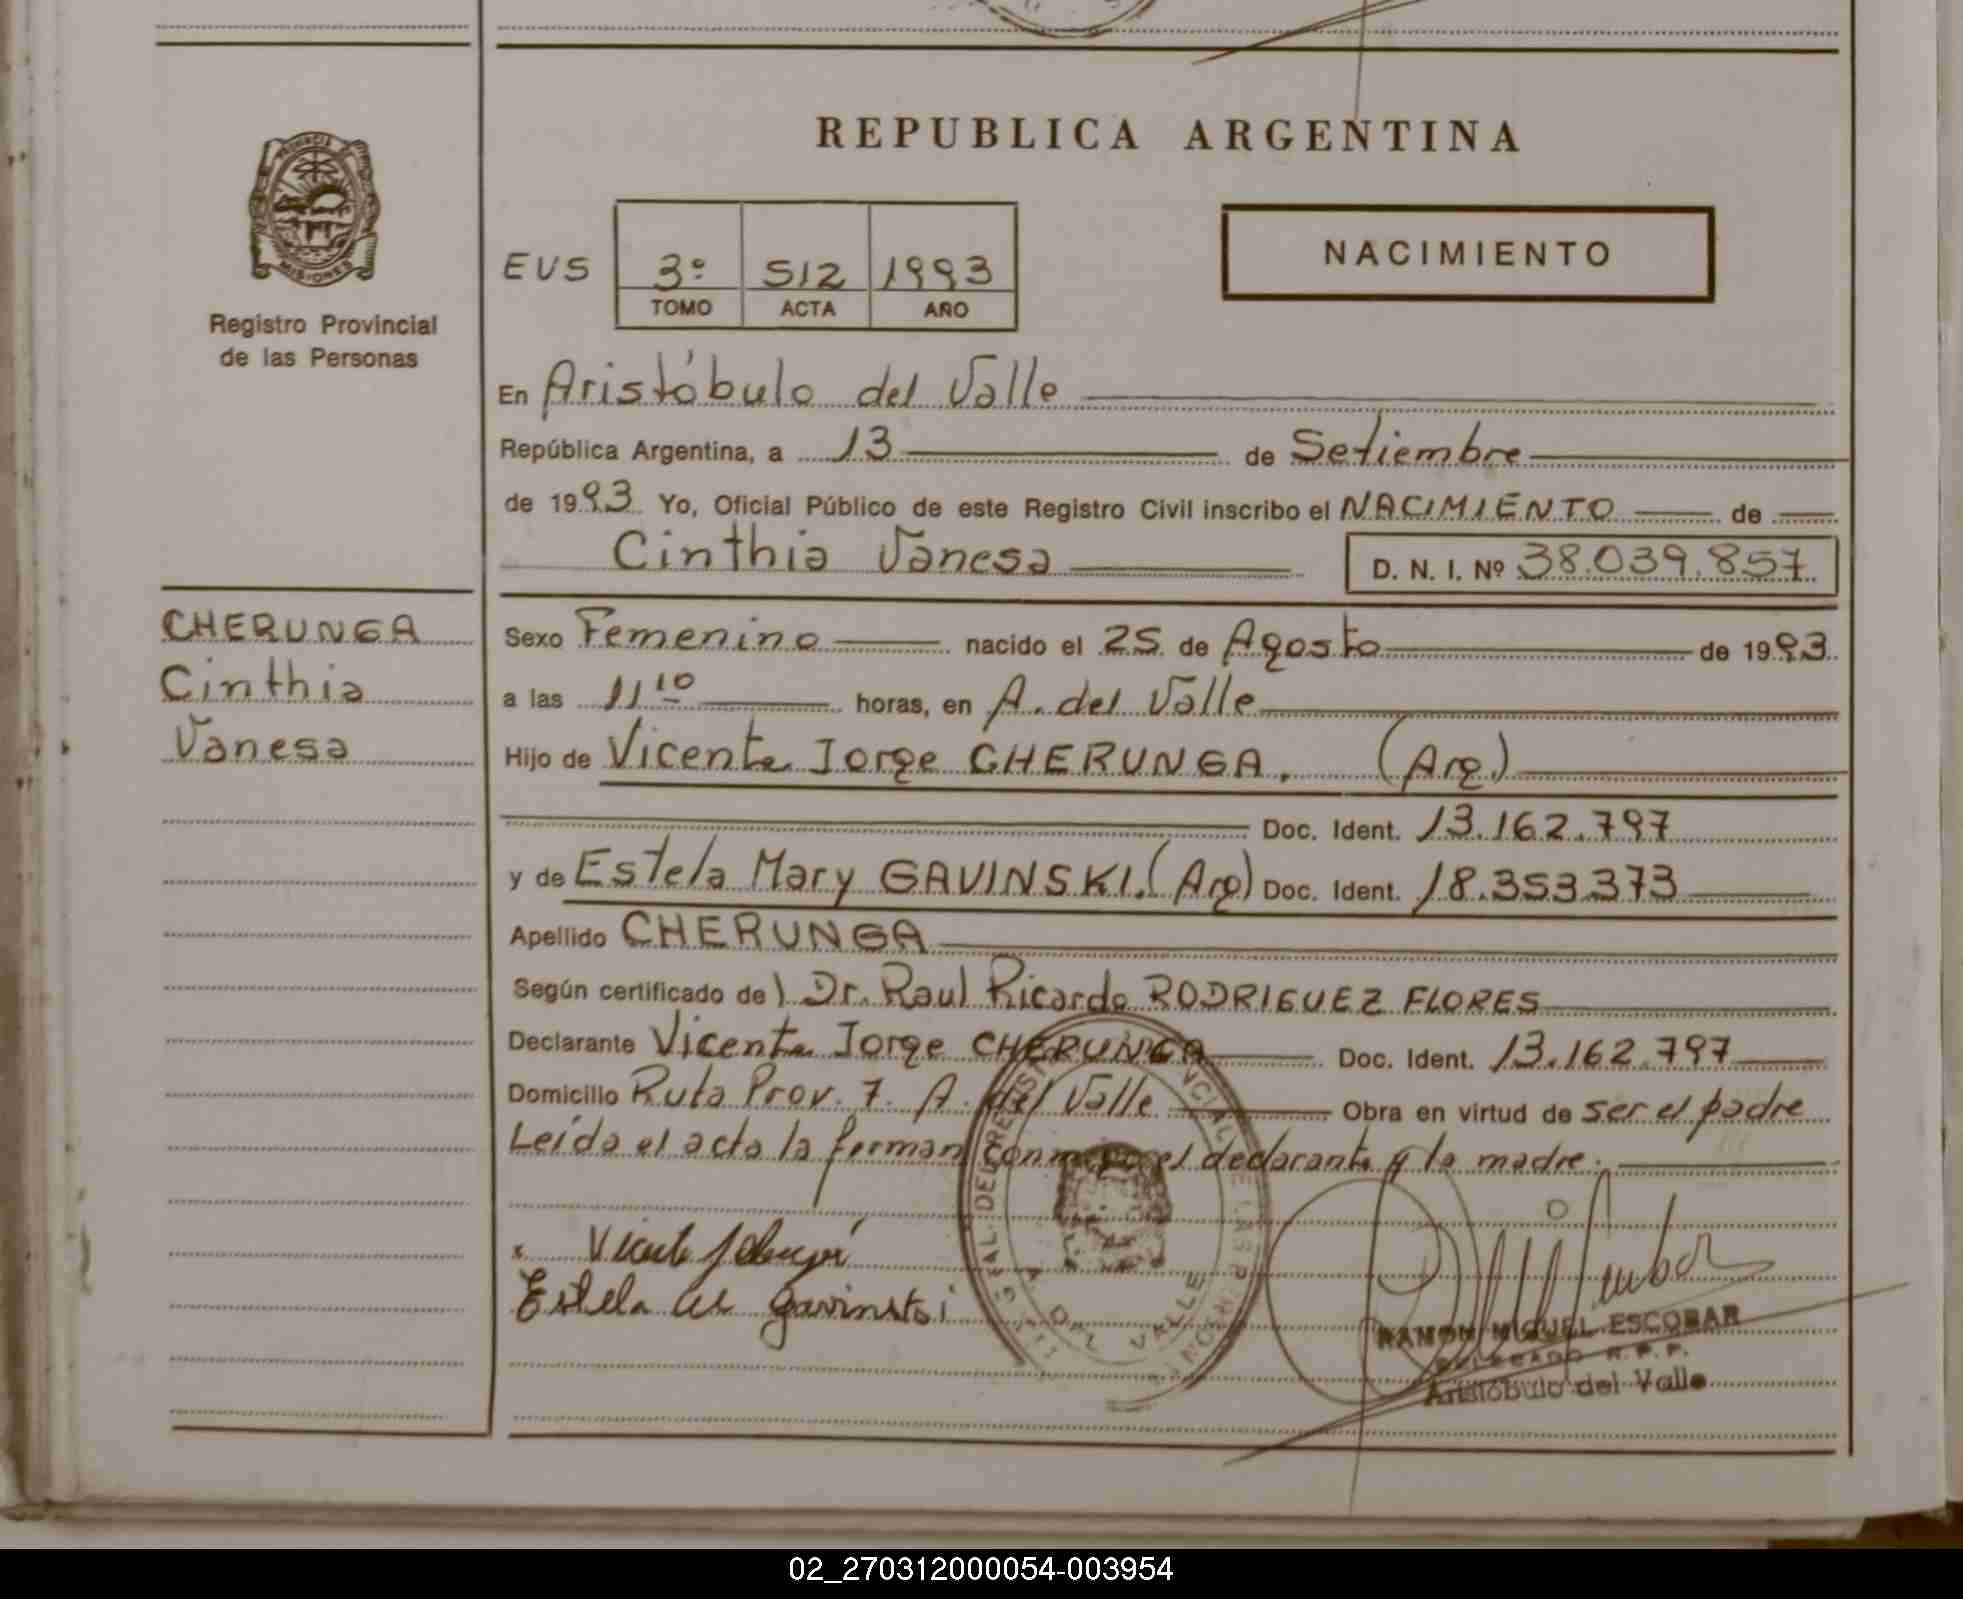 REPUBLICA ARGENTINA
PROVINCIA DE
MISIONES
Registro Provincial
de las Personas
EUS 3º 512 1993
TOMO ACTA AÑO
NACIMIENTO
En Aristóbulo del Valle
República Argentina, a 13 de Setiembre
de 1993 Yo, Oficial Público de este Registro Civil inscribo el NACIMIENTO de
Cinthia Vanesa D. N. I. Nº 38.039.857
CHERUNGA
Cinthia
Vanesa
Sexo Femenino nacido el 25 de Agosto de 1993
a las 11 10 horas, en A. del Valle
Hijo de Vicente Jorge CHERUNGA. (Arg)
Doc. Ident. 13.162.797
y de Estela Mary GAVINSKI. (Arg) Doc. Ident. 18.353.373
Apellido CHERUNGA
Según certificado de Dr. Raul Ricardo RODRIGUEZ FLORES
Declarante Vicente Jorge CHERUNGA Doc. Ident. 13.162.797
Domicilio Ruta Prov. 7. A. del Valle Obra en virtud de ser el padre
Leída el acta la firman conmigo el declarante y la madre.
Estela M Gavinski
VALLE
RAMON MIGUEL ESCOBAR
DELEGADO R. P. P.
Aristóbulo del Valle
02_270312000054-003954